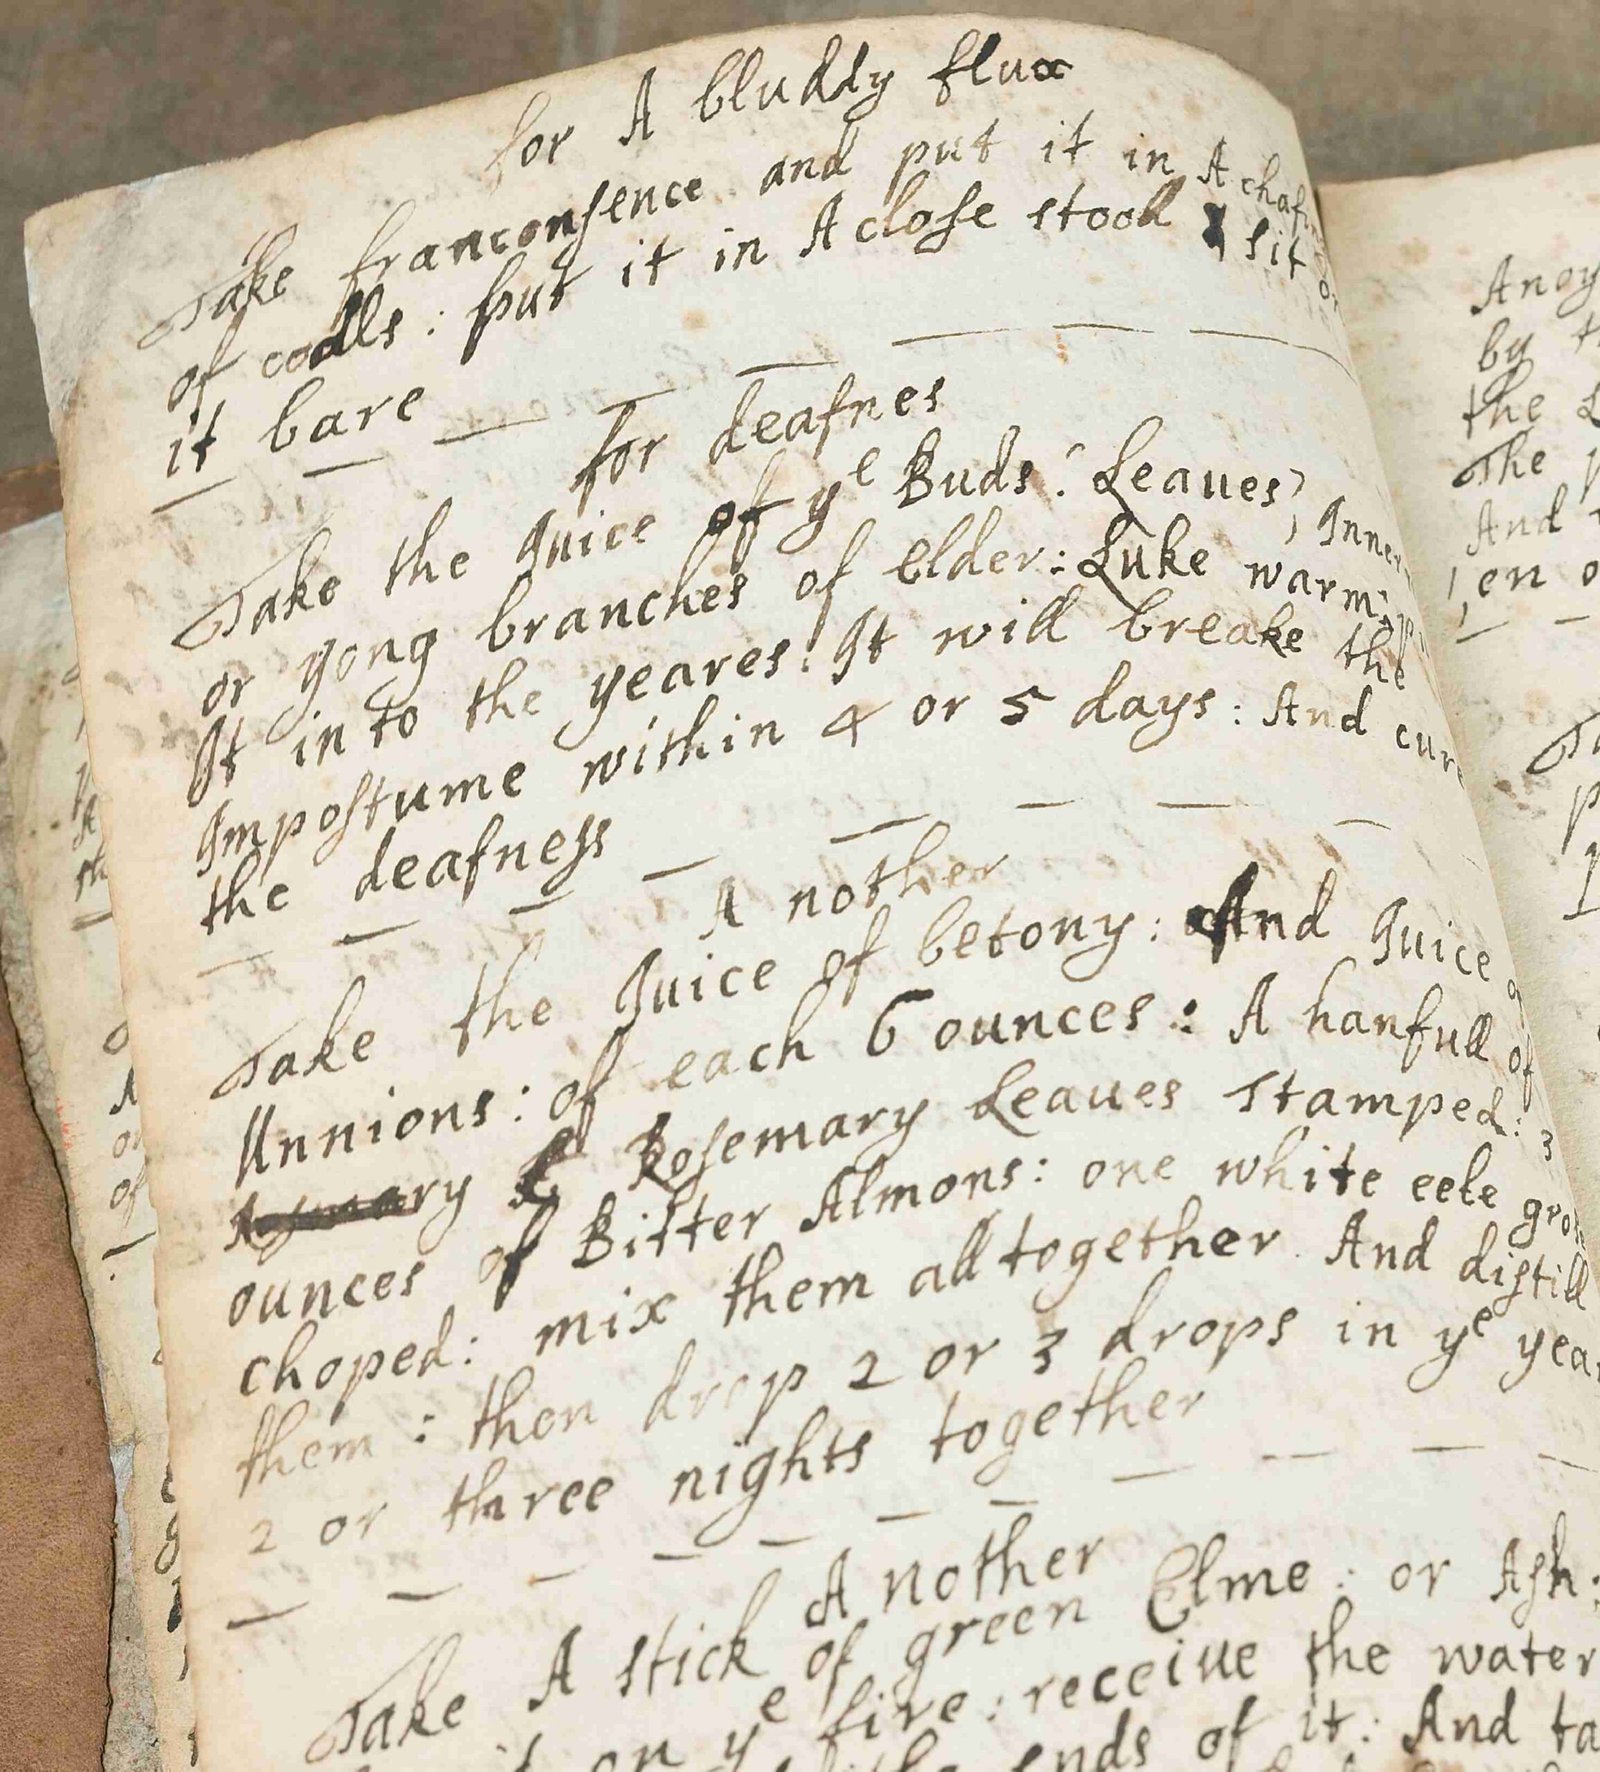 for A bluddy flux
Take franconsence and put it in A chaf
of coalls : put it in A close stooll & sit on
it bare
for deafnes
Take the Juice of yᵉ Buds : Leaues, Inner
or yong branches of elder : Luke warm :
It in to the yeares : It will breake the
Impostume within 4 or 5 days : And cure
the deafness
A nother
Take the Juice of betony : And Juice of
Unnions : of each 6 ounces : A hanfull of
Rosemary Leaues stamped : 3
ounces of Bitter Almons : one white eele
choped : mix them all together And distill
them : then drop 2 or 3 drops in yᵉ year
2 or three nights together
A nother
Take A stick of green Elme : or Ash :
on yᵉ fire : receiue the water
ends of it : And ta
Anoy
by t
the L
The p
And
en o
Ta